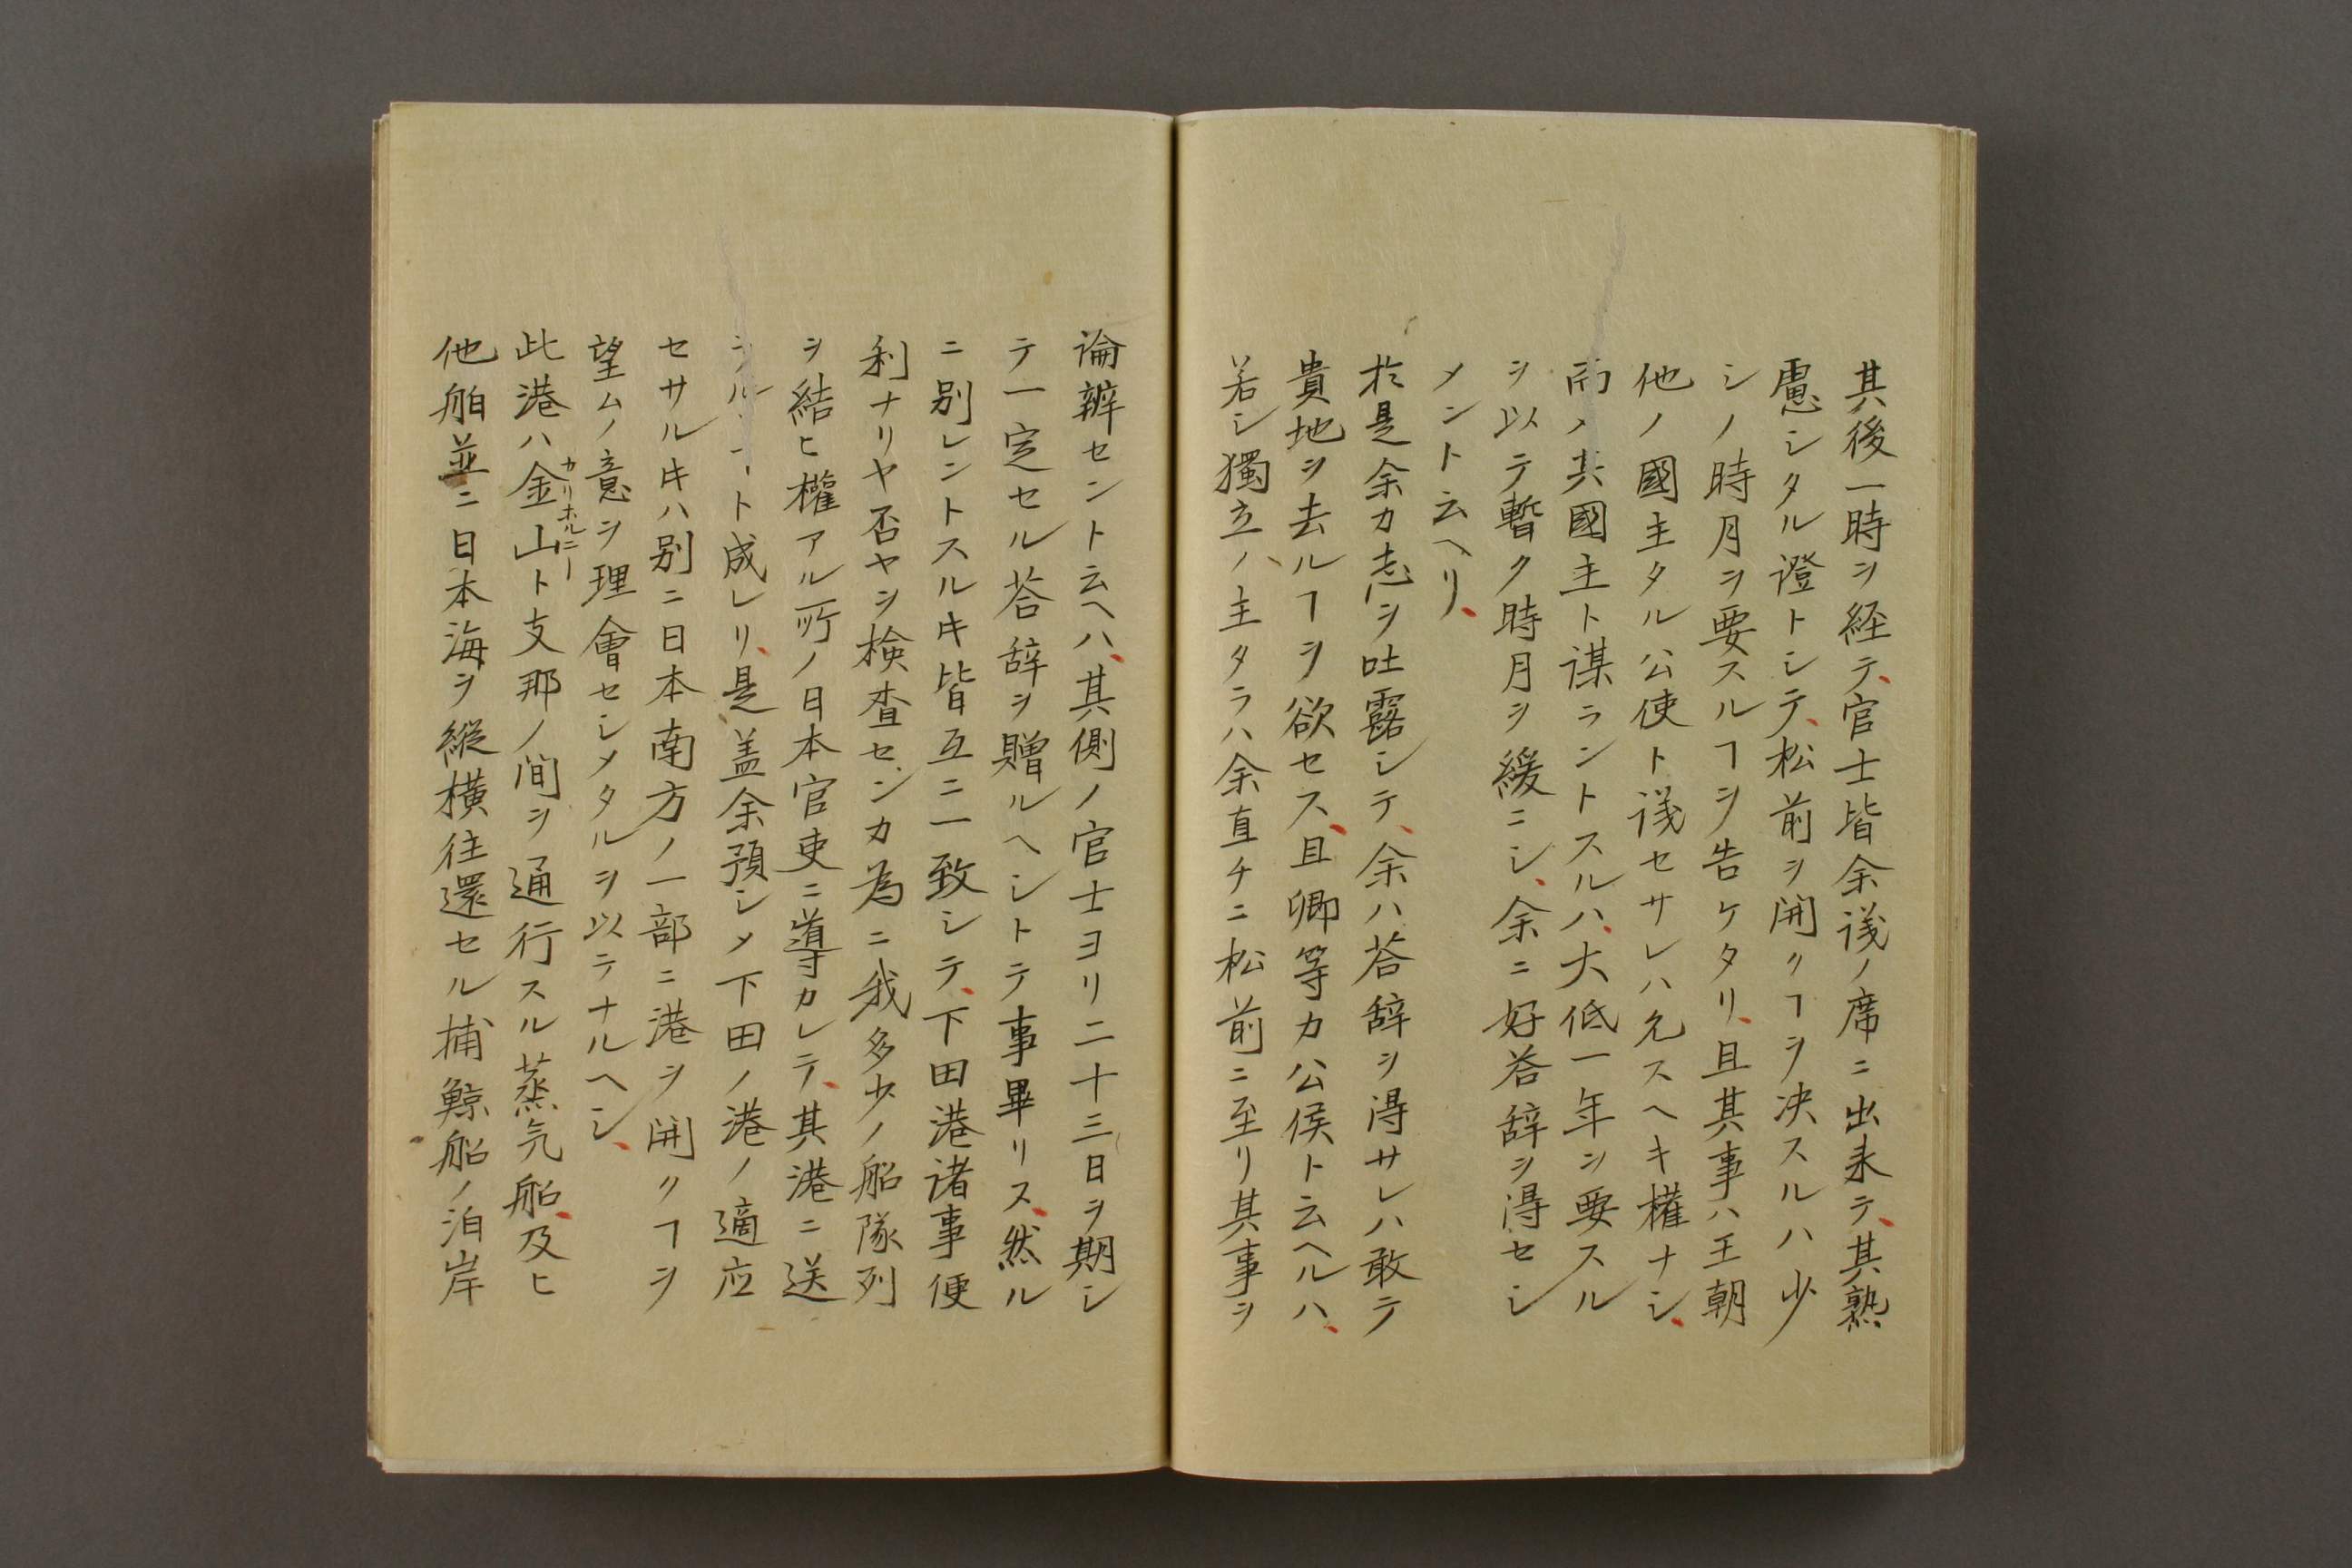 其後一時ヲ経テ、官士皆余議ノ席ニ出来テ、其熟
慮シタル證トシテ、松前ヲ開クヿヲ决スルハ少
シノ時月ヲ要スルヿヲ告ケタリ、且其事ハ王朝
他ノ國主タル公使ト議セサレハ允スヘキ權ナシ、
而ノ其國主ト謀ラントスルハ、大低一年ヲ要スル
ヲ以テ暫ク時月ヲ緩ニシ、余ニ好答辞ヲ得セシ
メント云ヘリ、
於是余カ志ヲ吐露シテ、余ハ答辞ヲ得サレハ敢テ
貴地ヲ去ルヿヲ欲セス、且卿等カ公侯ト云ヘルハ、
若シ獨立ノ主タラハ余直チニ松前ニ至リ其事ヲ
論辨セント云ヘハ、其側ノ官士ヨリ二十三日ヲ期シ
テ一定セル荅辞ヲ贈ルヘシトテ事畢リス、然ル
ニ別レントスルキ皆互ニ一致シテ、下田港諸事便
利ナリヤ否ヤヲ検査センカ為ニ我多少ノ船隊列
ヲ結ヒ權アル所ノ日本官吏ニ導カレテ、其港ニ送
ルト成レリ、是盖余預シメ下田ノ港ノ適应
セサルキハ別ニ日本南方ノ一部ニ港ヲ開クヿヲ
望ムノ意ヲ理會セシメタルヲ以テナルヘシ、
此港ハ金山カリホルニートト支那ノ間ヲ通行スル蒸气船、及ヒ
他舶並ニ日本海ヲ縦横往還セル捕鯨船ノ泊岸